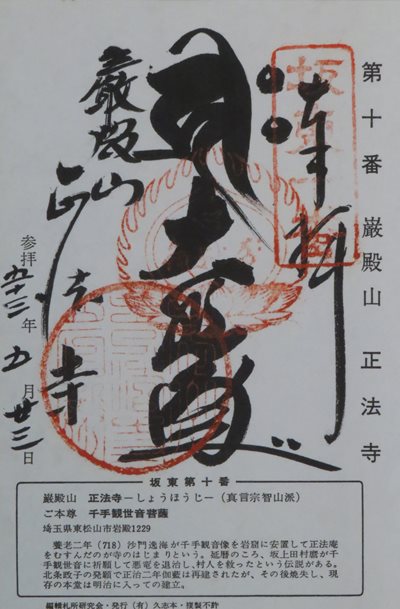 第十番 巌殿山 正法寺
坂東十番
奉拝
大悲殿
巌殿山
正法寺
参拝 五十三年 五月 廿三日
坂東第十番
巌殿山 正法寺－しょうほうじ－(真言宗智山派)
ご本尊 千手観世音菩薩
埼玉県東松山市岩殿1229
養老二年(718)沙門逸海が千手観音像を岩窟に安置して正法庵
をむすんだのが寺のはじまりという。延暦のころ、坂上田村麿が千
手観世音に祈願して悪竜を退治し、村人を救ったという伝説がある。
北条政子の発願で正治二年伽藍は再建されたが、その後焼失し、現
存の本堂は明治に入っての建立。
編輯札所研究会・発行(有)久志本・複製不許